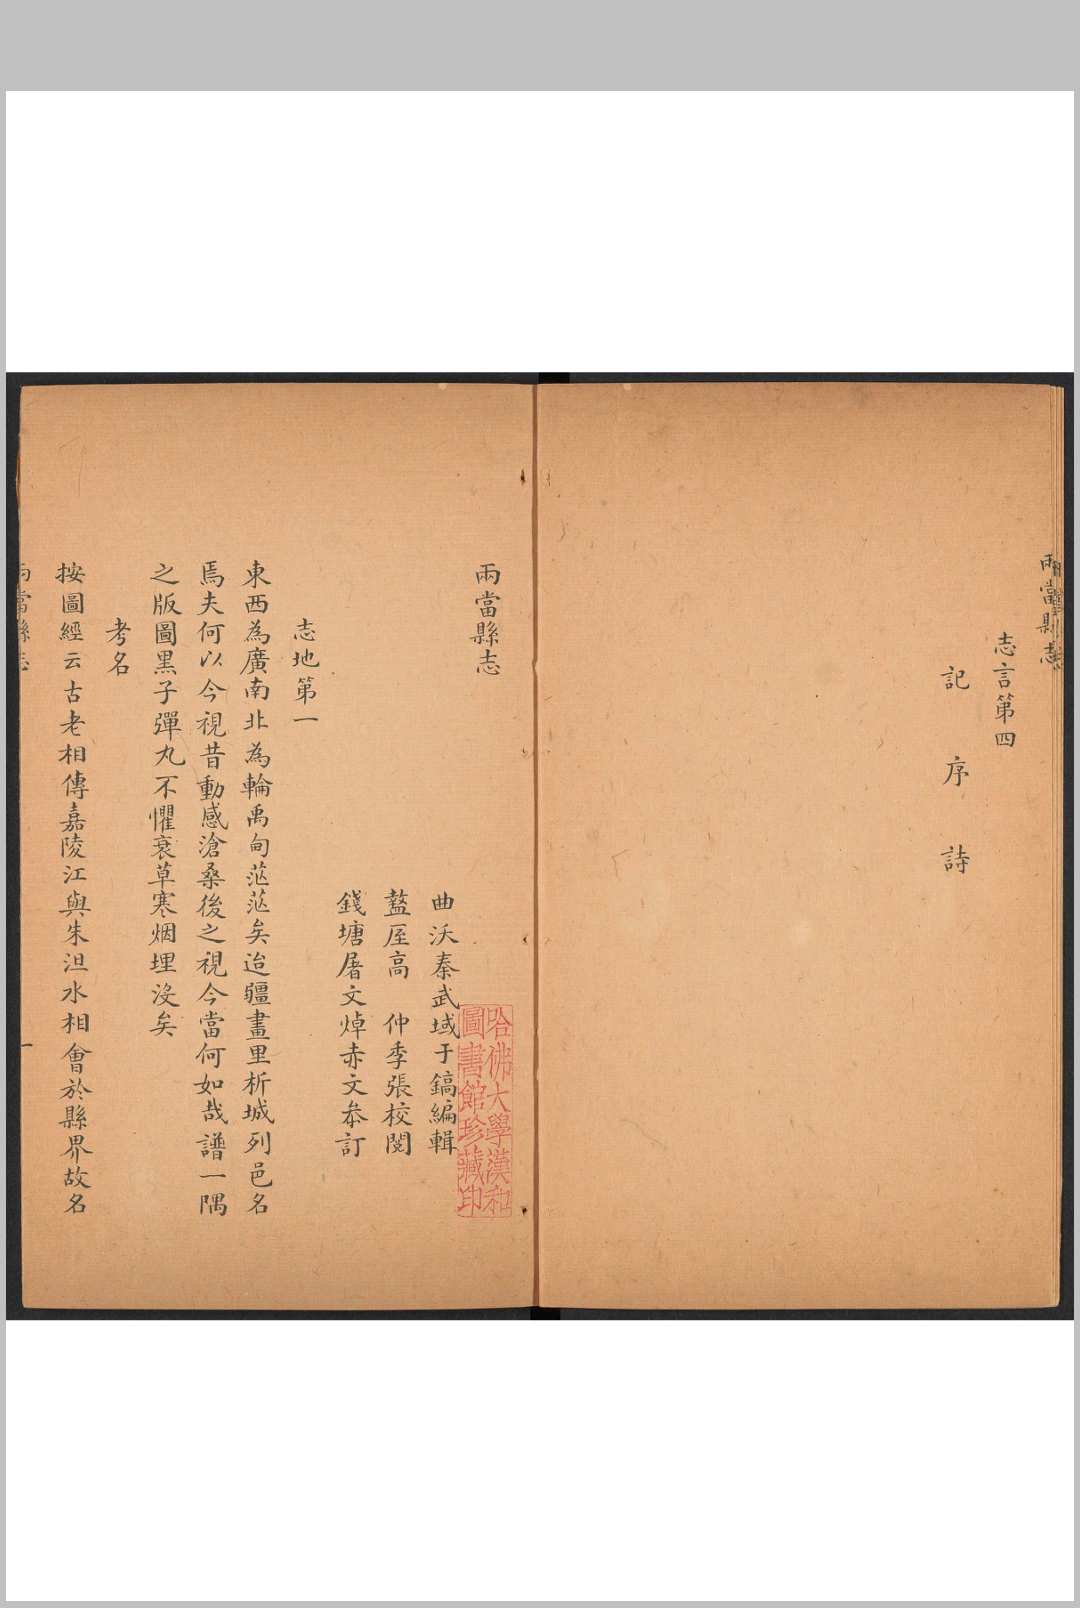 兩當縣志
志言第四
記 序 詩
兩當縣志
曲沃秦武域于鎬編輯
盩厔高 仲季張校閱
錢塘屠文焯赤文叅訂
哈佛大學漢和
圖書館珍藏印
志地第一
東西為廣南北為輪禹甸茫茫矣迨疆畫里析城列邑名
焉夫何以今視昔動感滄桑後之視今當何如哉譜一隅
之版圖黑子彈丸不懼衰草寒烟埋沒矣
考名
按圖經云古老相傳嘉陵江與朱泹水相會於縣界故名
兩當縣志
一